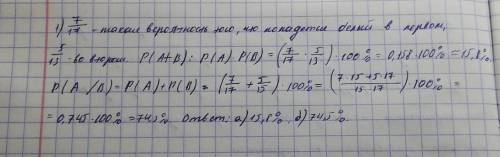 1) 7/17 - такая вероятность того, что попадется белый в первом,
5/15 - во втором. P(A+B) = P(A) · P(B) = (7/17 · 5/13) · 100% = 0,158 · 100% = 15,8%
P(A/B) = P(A) + P(B) = (7/17 + 5/15) · 100% = (7·15+5·17/15·17) · 100% =
= 0,745 · 100% = 74,5%. Ответ: а) 15,8%, б) 74,5%.